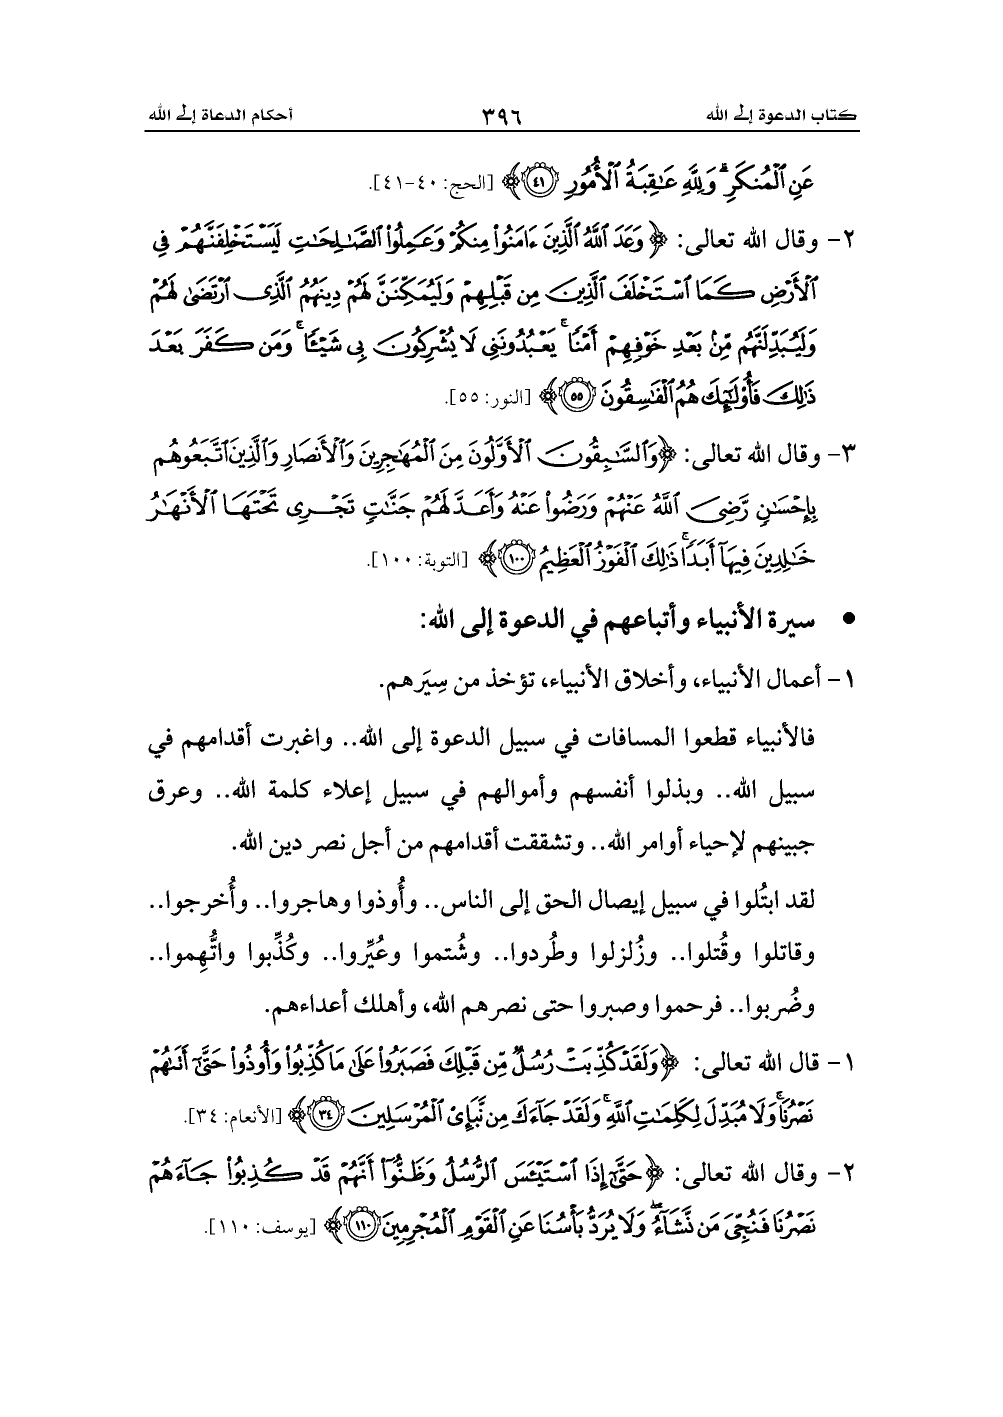 كتاب الدعوة إلى الله ٣٩٦ أحكام الدعاة إلى الله
عَنِ ٱلْمُنكَرِ ۗ وَلِلَّهِ عَٰقِبَةُ ٱلْأُمُورِ ٤١ ﴾ [الحج: ٤٠-٤١].
٢- وقال الله تعالى: ﴿ وَعَدَ ٱللَّهُ ٱلَّذِينَ ءَامَنُوا۟ مِنكُمْ وَعَمِلُوا۟ ٱلصَّٰلِحَٰتِ لَيَسْتَخْلِفَنَّهُمْ فِى
ٱلْأَرْضِ كَمَا ٱسْتَخْلَفَ ٱلَّذِينَ مِن قَبْلِهِمْ وَلَيُمَكِّنَنَّ لَهُمْ دِينَهُمُ ٱلَّذِى ٱرْتَضَىٰ لَهُمْ
وَلَيُبَدِّلَنَّهُم مِّنۢ بَعْدِ خَوْفِهِمْ أَمْنًا ۚ يَعْبُدُونَنِى لَا يُشْرِكُونَ بِى شَيْـًٔا ۚ وَمَن كَفَرَ بَعْدَ
ذَٰلِكَ فَأُو۟لَٰٓئِكَ هُمُ ٱلْفَٰسِقُونَ ٥٥ ﴾ [النور: ٥٥].
٣- وقال الله تعالى: ﴿ وَٱلسَّٰبِقُونَ ٱلْأَوَّلُونَ مِنَ ٱلْمُهَٰجِرِينَ وَٱلْأَنصَارِ وَٱلَّذِينَ ٱتَّبَعُوهُم
بِإِحْسَٰنٍ رَّضِىَ ٱللَّهُ عَنْهُمْ وَرَضُوا۟ عَنْهُ وَأَعَدَّ لَهُمْ جَنَّٰتٍ تَجْرِى تَحْتَهَا ٱلْأَنْهَٰرُ
خَٰلِدِينَ فِيهَآ أَبَدًا ۚ ذَٰلِكَ ٱلْفَوْزُ ٱلْعَظِيمُ ١٠٠ ﴾ [التوبة: ١٠٠].
• سيرة الأنبياء وأتباعهم في الدعوة إلى الله:
١- أعمال الأنبياء، وأخلاق الأنبياء، تؤخذ من سِيَرهم.
فالأنبياء قطعوا المسافات في سبيل الدعوة إلى الله.. واغبرت أقدامهم في
سبيل الله.. وبذلوا أنفسهم وأموالهم في سبيل إعلاء كلمة الله.. وعرق
جبينهم لإحياء أوامر الله.. وتشققت أقدامهم من أجل نصر دين الله.
لقد ابتُلوا في سبيل إيصال الحق إلى الناس.. وأُوذوا وهاجروا.. وأُخرجوا..
وقاتلوا وقُتلوا.. وزُلزلوا وطُردوا.. وشُتموا وعُيِّروا.. وكُذِّبوا واتُّهِموا..
وضُربوا.. فرحموا وصبروا حتى نصرهم الله، وأهلك أعداءهم.
١- قال الله تعالى: ﴿ وَلَقَدْ كُذِّبَتْ رُسُلٌ مِّن قَبْلِكَ فَصَبَرُوا۟ عَلَىٰ مَا كُذِّبُوا۟ وَأُوذُوا۟ حَتَّىٰٓ أَتَىٰهُمْ
نَصْرُنَا ۚ وَلَا مُبَدِّلَ لِكَلِمَٰتِ ٱللَّهِ ۚ وَلَقَدْ جَآءَكَ مِن نَّبَإِى۟ ٱلْمُرْسَلِينَ ٣٤ ﴾ [الأنعام: ٣٤].
٢- وقال الله تعالى: ﴿ حَتَّىٰٓ إِذَا ٱسْتَيْـَٔسَ ٱلرُّسُلُ وَظَنُّوٓا۟ أَنَّهُمْ قَدْ كُذِبُوا۟ جَآءَهُمْ
نَصْرُنَا فَنُجِّىَ مَن نَّشَآءُ ۖ وَلَا يُرَدُّ بَأْسُنَا عَنِ ٱلْقَوْمِ ٱلْمُجْرِمِينَ ١١٠ ﴾ [يوسف: ١١٠].